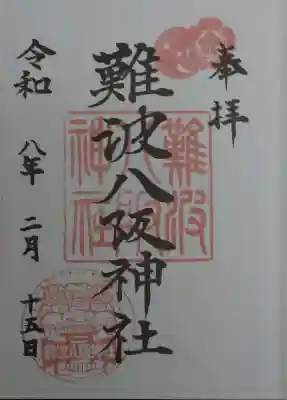 奉拝
難波八阪神社
難波八阪神社
令和八年二月十五日